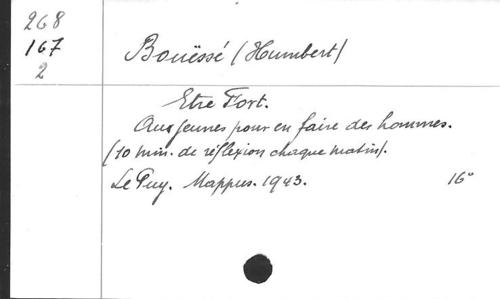 268
167
2
Bouëssé (Humbert)
Etre Fort.
Aux jeunes pour en faire des hommes.
(10 min. de réflexion chaque matin).
Le Puy. Mappus. 1943. 16°